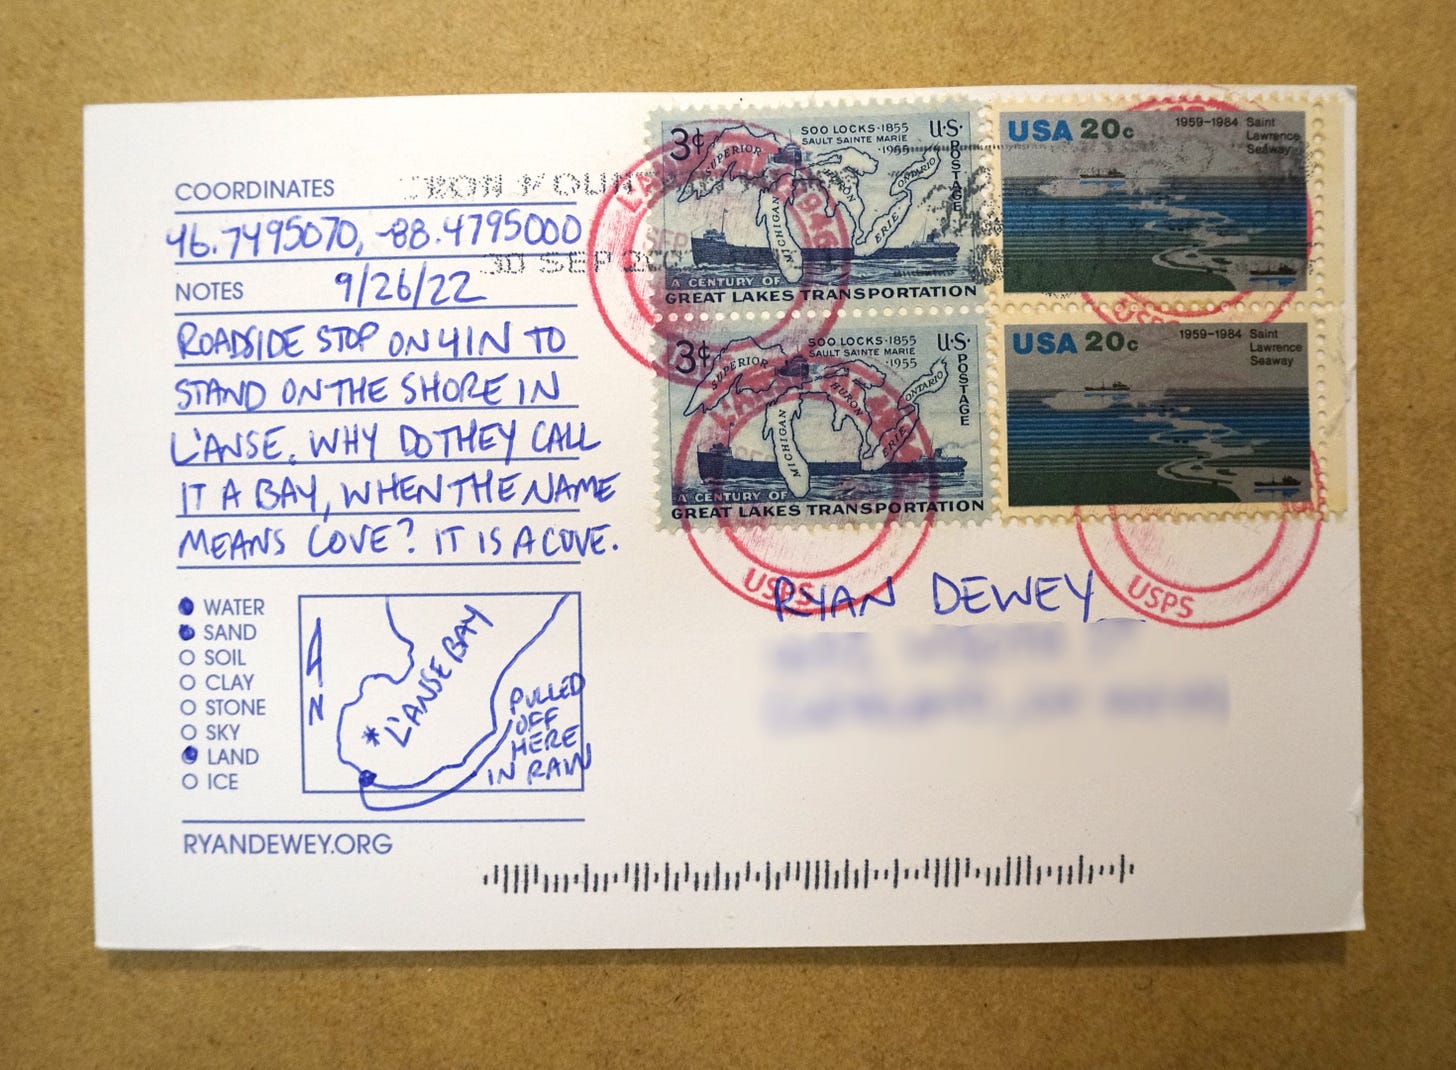 COORDINATES
46.7495070, -88.4795000
NOTES 9/26/22
ROADSIDE STOP ON 41N TO
STAND ON THE SHORE IN
L'ANSE. WHY DO THEY CALL
IT A BAY, WHEN THE NAME
MEANS COVE? IT IS A COVE.
WATER
SAND
SOIL
CLAY
STONE
SKY
LAND
ICE
N
L'ANSE BAY
PULLED
OFF
HERE
IN RAIN
RYANDEWEY.ORG
30 SEP
3¢
SOO LOCKS·1855
SAULT SAINTE MARIE
·1955
U·S·
POSTAGE
SUPERIOR
MICHIGAN
HURON
ERIE
ONTARIO
A CENTURY OF
GREAT LAKES TRANSPORTATION
USA 20c
1959–1984 Saint
Lawrence
Seaway
3¢
SOO LOCKS·1855
SAULT SAINTE MARIE
·1955
U·S·
POSTAGE
SUPERIOR
MICHIGAN
HURON
ERIE
ONTARIO
A CENTURY OF
GREAT LAKES TRANSPORTATION
USA 20c
1959–1984 Saint
Lawrence
Seaway
SEP
USPS
USPS
RYAN DEWEY